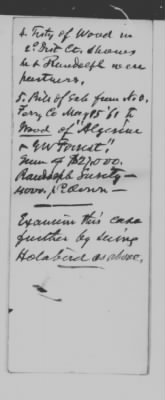 4. Testy of Wood in
2d Dist Co. Shows
he & Randolph were
partners.
5. Bill of Sale from N.O.
Ferry Co May 25 '61 to
Wood of Algerine
& GW Forrest.
Sum of $27000.
Randolph Surety
down
Examine this case
further by seeing
Holabird as above.